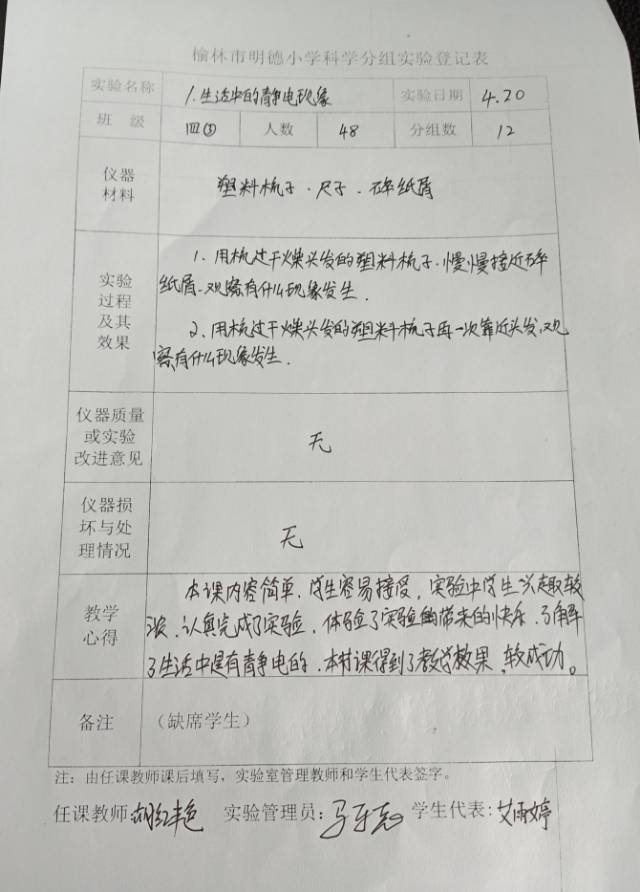 榆林市明德小学科学分组实验登记表
实验名称 1.生活中的静电现象 实验日期 4.20
班 级 四③ 人数 48 分组数 12
仪器材料 塑料梳子、尺子、碎纸屑
实验过程及其效果
1、用梳过干燥头发的塑料梳子、慢慢接近碎
纸屑、观察有什么现象发生.
2、用梳过干燥头发的塑料梳子再一次靠近头发、观
察有什么现象发生.
仪器质量或实验改进意见 无
仪器损坏与处理情况 无
教学心得
本课内容简单、学生容易接受,实验中学生兴趣较
浓、认真完成了实验,体验了实验带来的快乐,了解
了生活中是有静电的、本村课得到了教学效果、较成功。
备注 (缺席学生)
注:由任课教师课后填写,实验室管理教师和学生代表签字。
任课教师: 实验管理员: 学生代表:艾雨婷